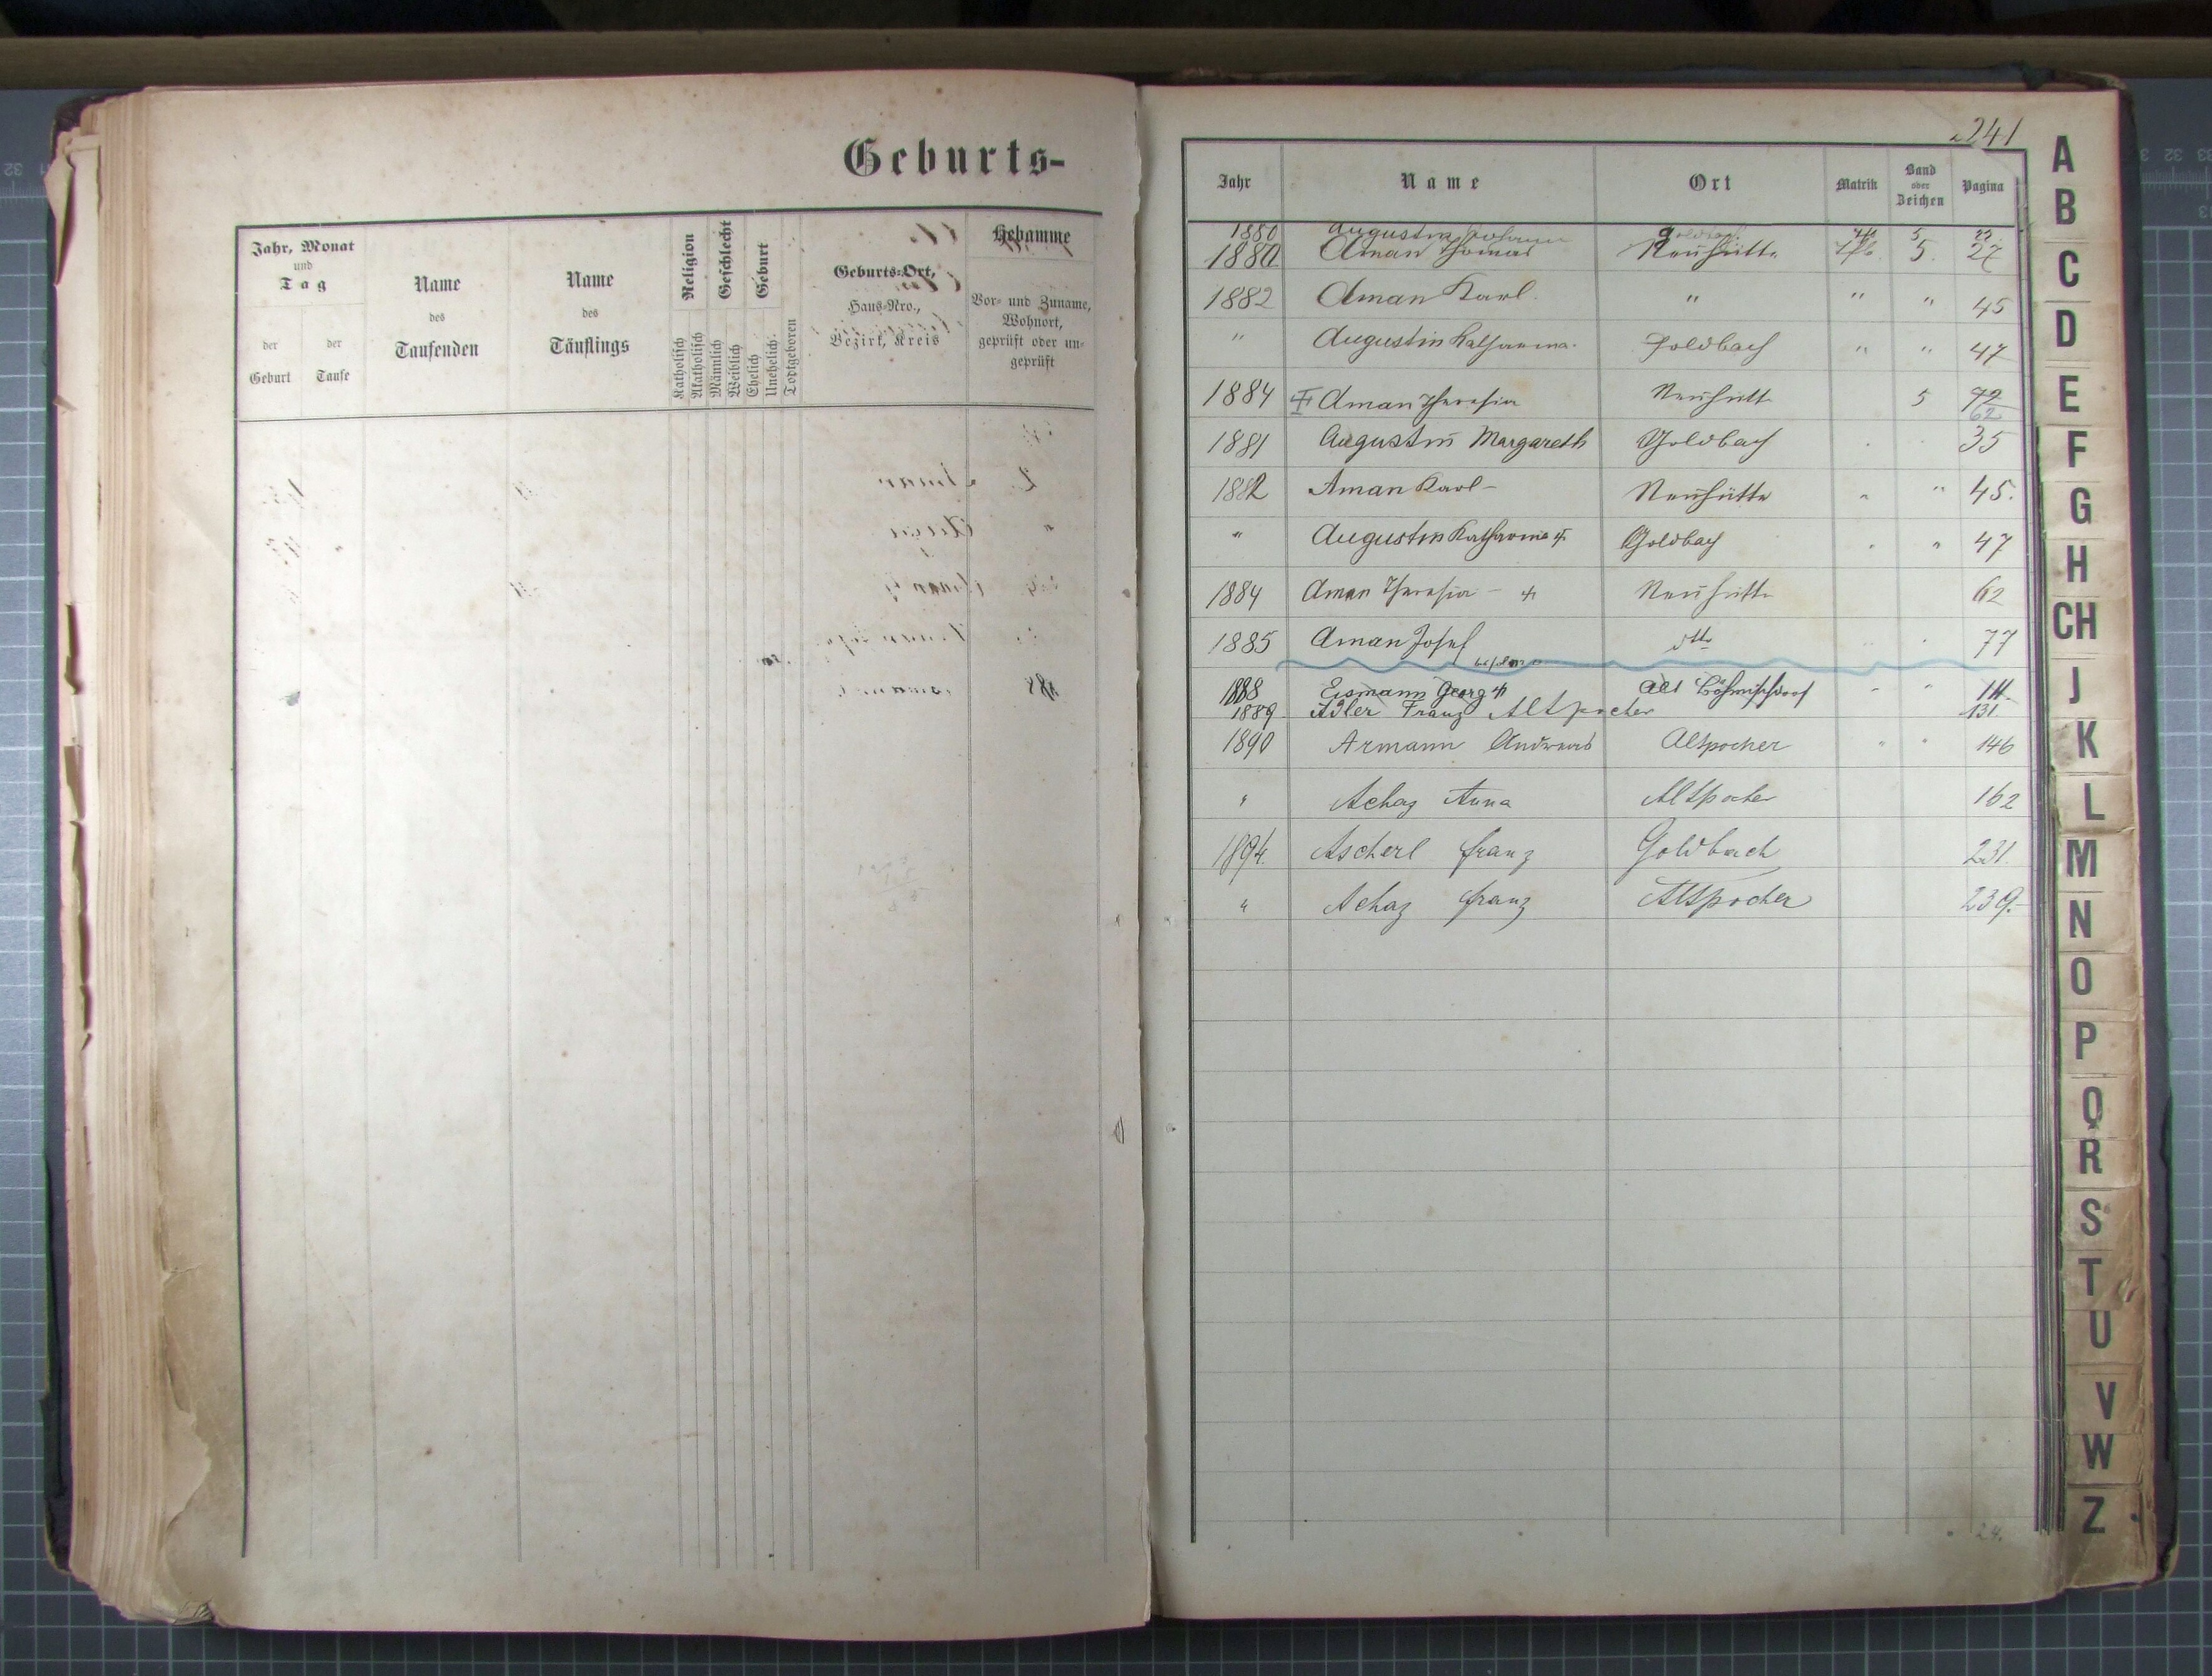 Geburts-
Jahr, Monat
und
Tag
der
Geburt
der
Taufe
Name
des
Taufenden
Name
des
Täuflings
Religion
Katholisch
Akatholisch
Geschlecht
Männlich
Weiblich
Geburt
Ehelich
Unehelich
Todtgeboren
Geburts-Ort,
Haus-Nro.,
Bezirk, Kreis
Hebamme
Vor- und Zuname,
Wohnort,
geprüft oder un-
geprüft
241
Jahr Name Ort Matrik Band oder Zeichen Pagina
1880 Augustin Johann Goldbach 5
1880 Aman Thomas Neuhütte 5. 27
1882 Aman Karl. " " " 45
" Augustin Katharina. Goldbach " " 47
1884 Aman Theresia Neuhütte 5 72
62
1881 Augustin Margareth Goldbach 35
1882 Aman Karl - Neuhütte " " 45.
" Augustin Katharina Goldbach " " 47
1884 Aman Theresia - Neuhütte 62
1885 Aman Josef dtto 77
1888 Eismann Georg Alt Böhmischdorf " " 111
1889 Adler Franz Altpocher 131.
1890 Armann Andreas Altpocher " " 146
" Achaz Anna Altpocher 162
1894. Ascherl Franz Goldbach 231.
" Achaz Franz Altpocher 239.-
24.
A
B
C
D
E
F
G
H
CH
J
K
L
M
N
O
P
Q
R
S
T
U
V
W
Z